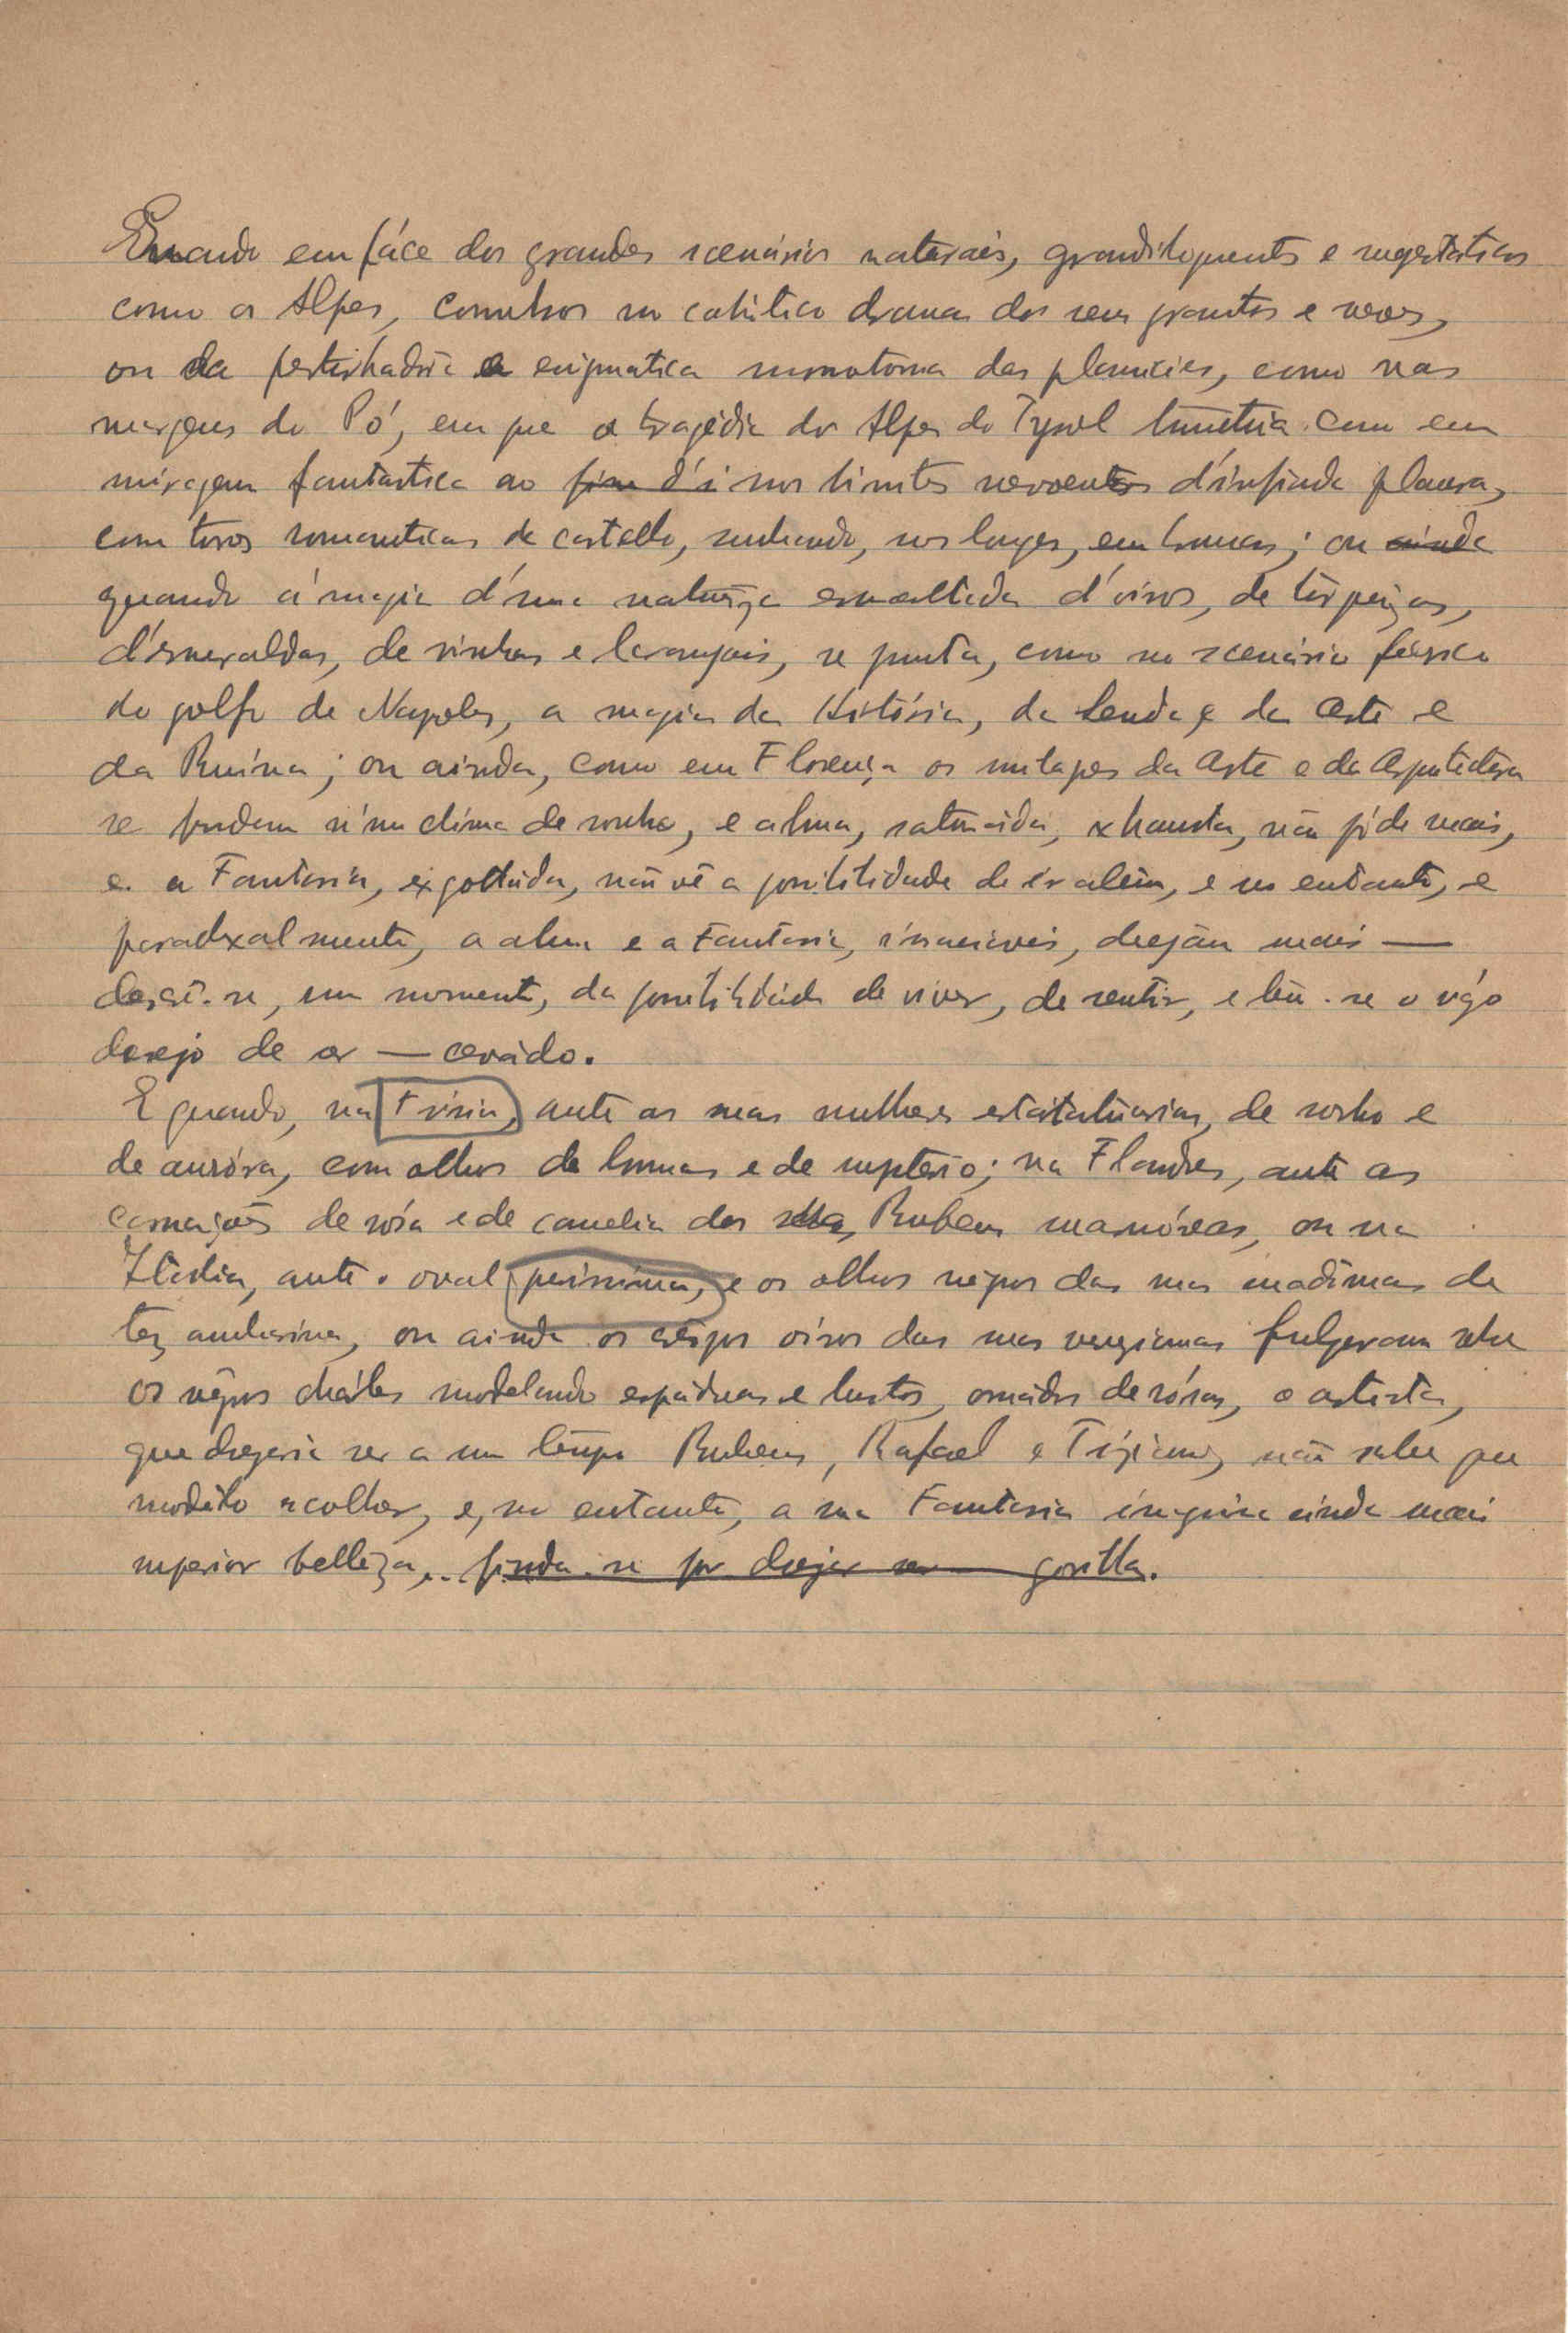 Quando em fáce dos grandes scenários naturais, grandiloquentes e
como os Alpes, convulsos no caótico drama dos seus granitos e neves,
ou da perturbadôra e enigmatica monotonia das planicies, como nas
margens do Pó, em que a tragédia dos Alpes do Tyrol como em
miragem fantástica ao fim d'i nos limites nevoentos d'infinda planura,
com torres romanticas de castello, sonhando, nos longes, em brumas; ou ainda
quando á magia d'uma natureza esmaltada d'oiros, de turquezas,
d'esmeraldas, de vinhas e laranjais, se junta, como no scenário feérico
do golfo de Napoles, a magia da História, da Lenda e da Arte e
da Ruína; ou ainda, como em Florença os milagres da Arte e da Arquitectura
se fundem n'um clima de sonho, e a alma, saturada, exhausta, não póde mais,
e a Fantasia, exgottada, não vê a possibilidade de ir além, e no entanto, e
paradoxalmente, a alma e a Fantasia, insaciaveis, desejam mais —
descrê-se, um momento, da possibilidade de viver, de sentir, e tem-se o vágo
desejo de ser — cevádo.
E quando, na Frísia, ante as suas mulheres estatuárias, de sonho e
de auróra, com olhos de brumas e de mysterio; na Flandres, ante as
carnações de rósa e de camelia dos Rubens, ou na
Itália, ante o oval puríssimo, e os olhos negros das suas madonas de
tez ambarina, ou ainda os crespos oiros das suas fulgeram sobre
os négros cháles modelando espáduas e bustos, ornádos de rósas, o artista,
que desejaria ser a um tempo Rubens, Rafael e Tiziano, não sabe que
modêlo escolher, e, no entanto, a sua Fantasia imagina ainda mais
superior belleza, ... finda-se por desejar ser — gorilla.